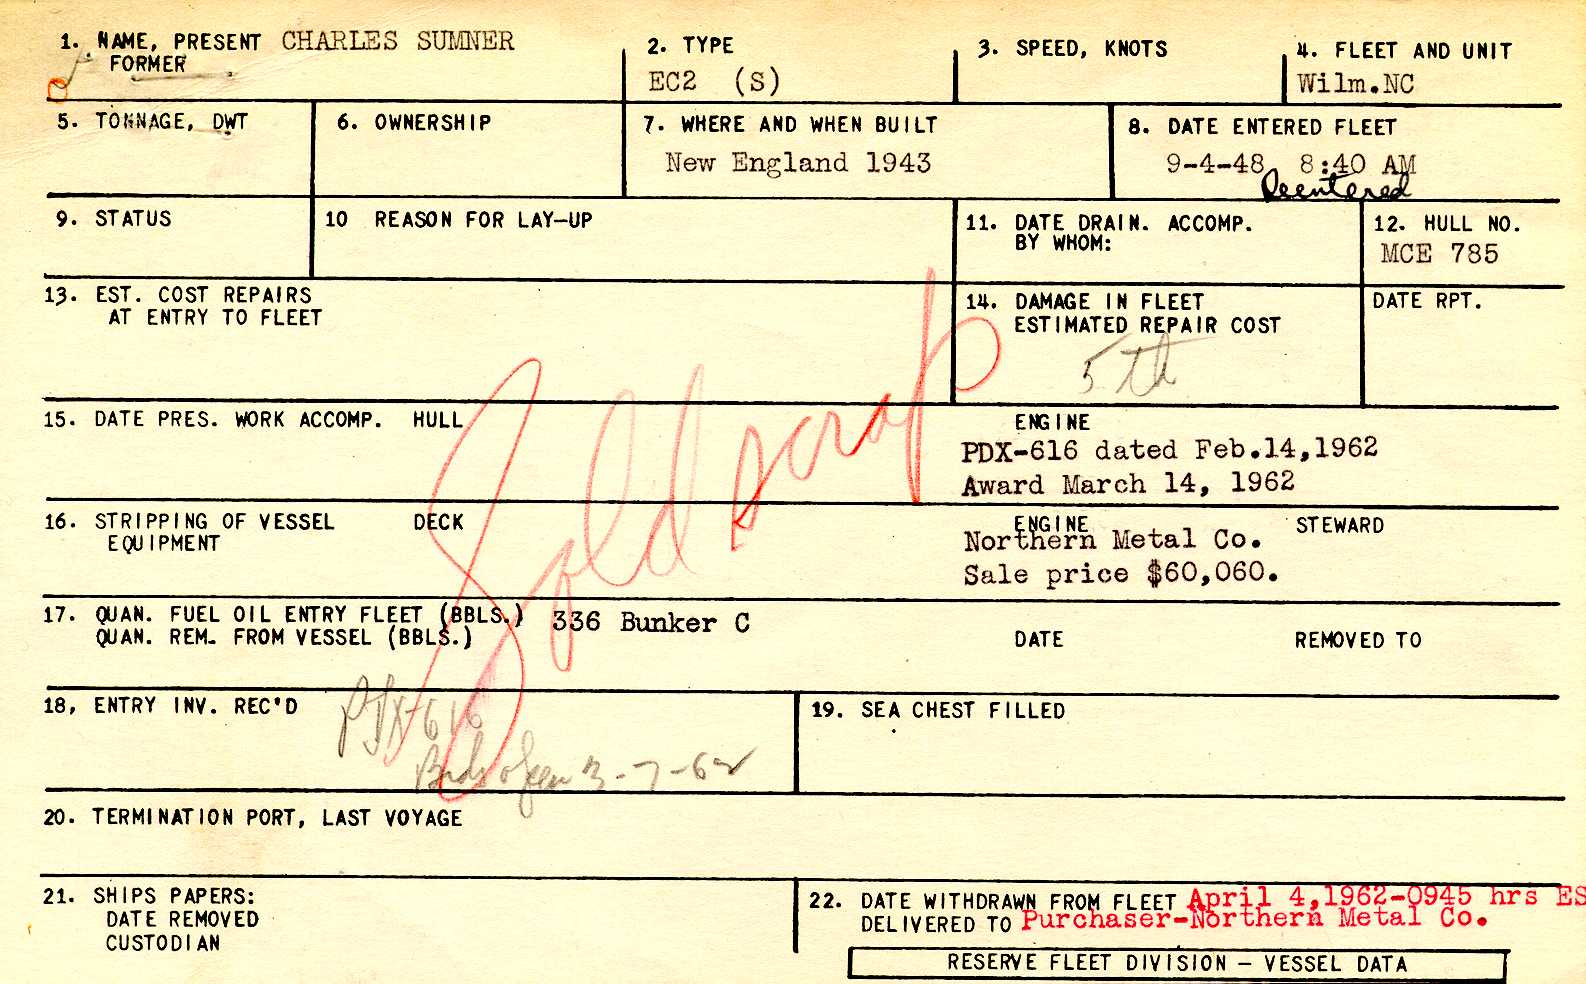 1. NAME, PRESENT CHARLES SUMNER
FORMER
2. TYPE
EC2 (S)
3. SPEED, KNOTS
4. FLEET AND UNIT
Wilm.NC
5. TONNAGE, DWT
6. OWNERSHIP
7. WHERE AND WHEN BUILT
New England 1943
8. DATE ENTERED FLEET
9-4-48 8:40 AM
Reentered
9. STATUS
10 REASON FOR LAY-UP
11. DATE DRAIN. ACCOMP.
BY WHOM:
12. HULL NO.
MCE 785
13. EST. COST REPAIRS
AT ENTRY TO FLEET
14. DAMAGE IN FLEET
ESTIMATED REPAIR COST
5th
DATE RPT.
Sold scrap
15. DATE PRES. WORK ACCOMP. HULL
ENGINE
PDX-616 dated Feb.14,1962
Award March 14, 1962
16. STRIPPING OF VESSEL DECK
EQUIPMENT
ENGINE
STEWARD
Northern Metal Co.
Sale price $60,060.
17. QUAN. FUEL OIL ENTRY FLEET (BBLS.) 336 Bunker C
QUAN. REM. FROM VESSEL (BBLS.)
DATE
REMOVED TO
18, ENTRY INV. REC'D
PDX-616
Bids open 3-7-62
19. SEA CHEST FILLED
20. TERMINATION PORT, LAST VOYAGE
21. SHIPS PAPERS:
DATE REMOVED
CUSTODIAN
22. DATE WITHDRAWN FROM FLEET April 4,1962-0945 hrs ES
DELIVERED TO Purchaser-Northern Metal Co.
RESERVE FLEET DIVISION — VESSEL DATA